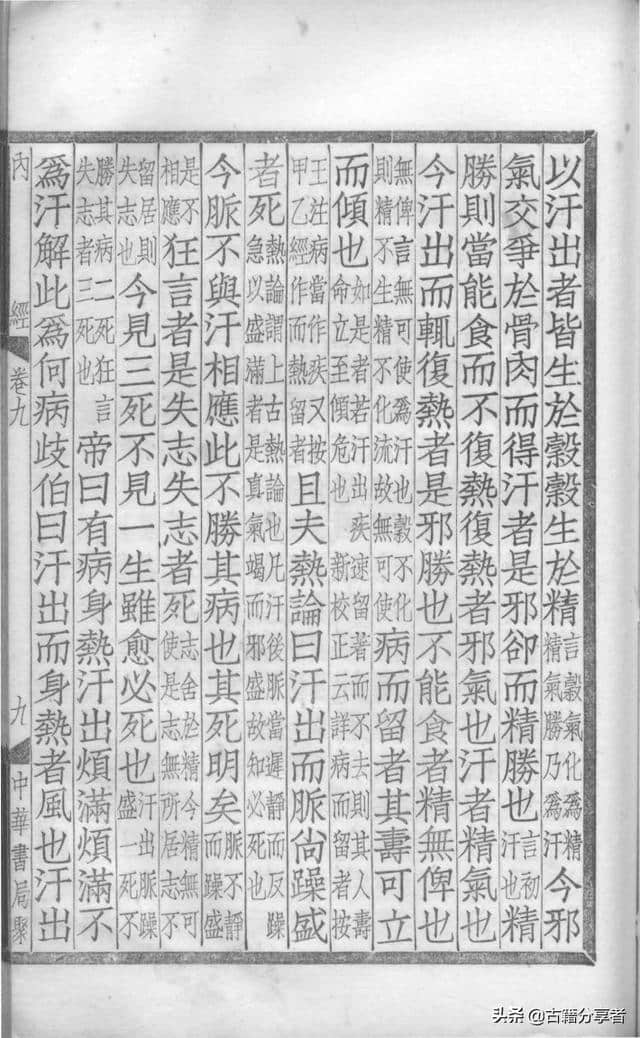 以汗出者皆生於穀穀生於精言穀氣化爲精精氣勝乃爲汗今邪
氣交爭於骨肉而得汗者是邪卻而精勝也言初汗也精
勝則當能食而不復熱復熱者邪氣也汗者精氣也
今汗出而輒復熱者是邪勝也不能食者精無俾也
無俾言無可使爲汗也穀不化則精不生精不化流故無可使病而留者其壽可立
而傾也如是者若汗出疾速留著而不去則其人壽命立至傾危也 新校正云詳病而留者按
王注病當作疾又按甲乙經作而熱留者且夫熱論曰汗出而脈尙躁盛
者死熱論謂上古熱論也凡汗後脈當遲靜而反躁急以盛滿者是真氣竭而邪盛故知必死也
今脈不與汗相應此不勝其病也其死明矣脈不靜而躁盛
是不相應狂言者是失志失志者死志舍於精今精無可使是志無所居志不
留居則失志也今見三死不見一生雖愈必死也汗出脈躁盛一死不
勝其病二死狂言失志者三死也帝曰有病身熱汗出煩滿煩滿不
爲汗解此爲何病歧伯曰汗出而身熱者風也汗出
內經 卷九 九 中華書局聚
头条@古籍分享者